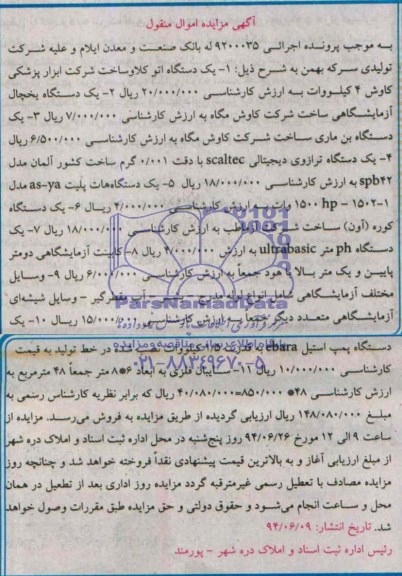 آگهی مزایده اموال منقول
به موجب پرونده اجرائی ۹۲۰۰۰۳۵ له بانک صنعت و معدن ایلام و علیه شرکت
تولیدی سرکه بهمن به شرح ذیل: ۱- یک دستگاه اتو کلاوساخت شرکت ابزار پزشکی
کاوش ۴ کیلووات به ارزش کارشناسی ۲۰/۰۰۰/۰۰۰ ریال ۲- یک دستگاه یخچال
آزمایشگاهی ساخت شرکت کاوش مگاه به ارزش کارشناسی ۷/۰۰۰/۰۰۰ ریال ۳- یک
دستگاه بن ماری ساخت شرکت کاوش مگاه به ارزش کارشناسی ۶/۵۰۰/۰۰۰ ریال
۴- یک دستگاه ترازوی دیجیتالی scaltec با دقت ۰/۰۰۱ گرم ساخت کشور آلمان مدل
spb۴۲ به ارزش کارشناسی ۱۸/۰۰۰/۰۰۰ ریال ۵- یک دستگاههات پلیت as-ya مدل
۱۵۰۰ hp - ۱۵۰۲-۱ وات به ارزش کارشناسی ۲/۰۰۰/۰۰۰ ریال ۶- یک دستگاه
کوره (آون) ساخت شرکت آزماطب به ارزش کارشناسی ۱۸/۰۰۰/۰۰۰ ریال ۷- یک
دستگاه ph متر ultrabasic به ارزش ۴/۰۰۰/۰۰۰ ریال ۸- کابینت آزمایشگاهی دومتر
پایین و یک متر بالا با هود جمعاً به ارزش کارشناسی ۶/۰۰۰/۰۰۰ ریال ۹- وسایل
مختلف آزمایشگاهی شامل انواع لوله مدرج آب مقطرگیر - وسایل شیشه‌ای
آزمایشگاهی متعدد دیگر جمعاً به ارزش کارشناسی ۱۵/۰۰۰/۰۰۰ ریال ۱۰- یک
ParsNamadData
دستگاه پمپ استیل ebara به قدرت کیلووات نصب شده در خط تولید به قیمت
پایگاه اطلاع رسانی مناقصه و مزایده
کارشناسی ۱۰/۰۰۰/۰۰۰ ریال ۱۱- سایبان فلزی به ابعاد ۶*۸ متر جمعاً ۴۸ مترمربع به
۰۲۱-۸۸۳۴۹۶۷۰-۵
ارزش کارشناسی ۴۸* ۸۵۰/۰۰۰=۴۰/۰۸۰/۰۰۰ ریال که برابر نظریه کارشناس رسمی به
مبلغ ۱۴۸/۰۸۰/۰۰۰ ریال ارزیابی گردیده از طریق مزایده به فروش می‌رسد. مزایده از
ساعت ۹ الی ۱۲ مورخ ۹۴/۰۶/۲۶ روز پنج‌شنبه در محل اداره ثبت اسناد و املاک دره شهر
از مبلغ ارزیابی آغاز و به بالاترین قیمت پیشنهادی نقداً فروخته خواهد شد و چنانچه روز
مزایده مصادف با تعطیل رسمی غیرمترقبه گردد مزایده روز اداری بعد از تعطیل در همان
محل و ساعت انجام می‌شود و حقوق دولتی و حق مزایده طبق مقررات وصول خواهد
شد. تاریخ انتشار: ۹۴/۰۶/۰۹
رئیس اداره ثبت اسناد و املاک دره شهر - پورمند